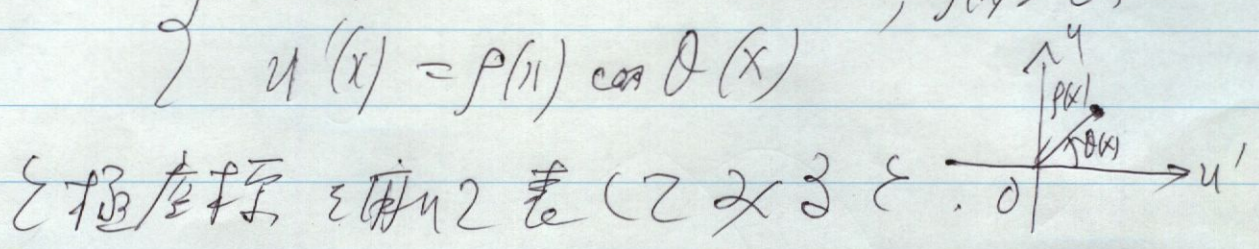 { u'(x) = ρ(x) cos θ(x)
と極座標を用いて表してみると.
u
ρ(x)
θ(x)
0
u'